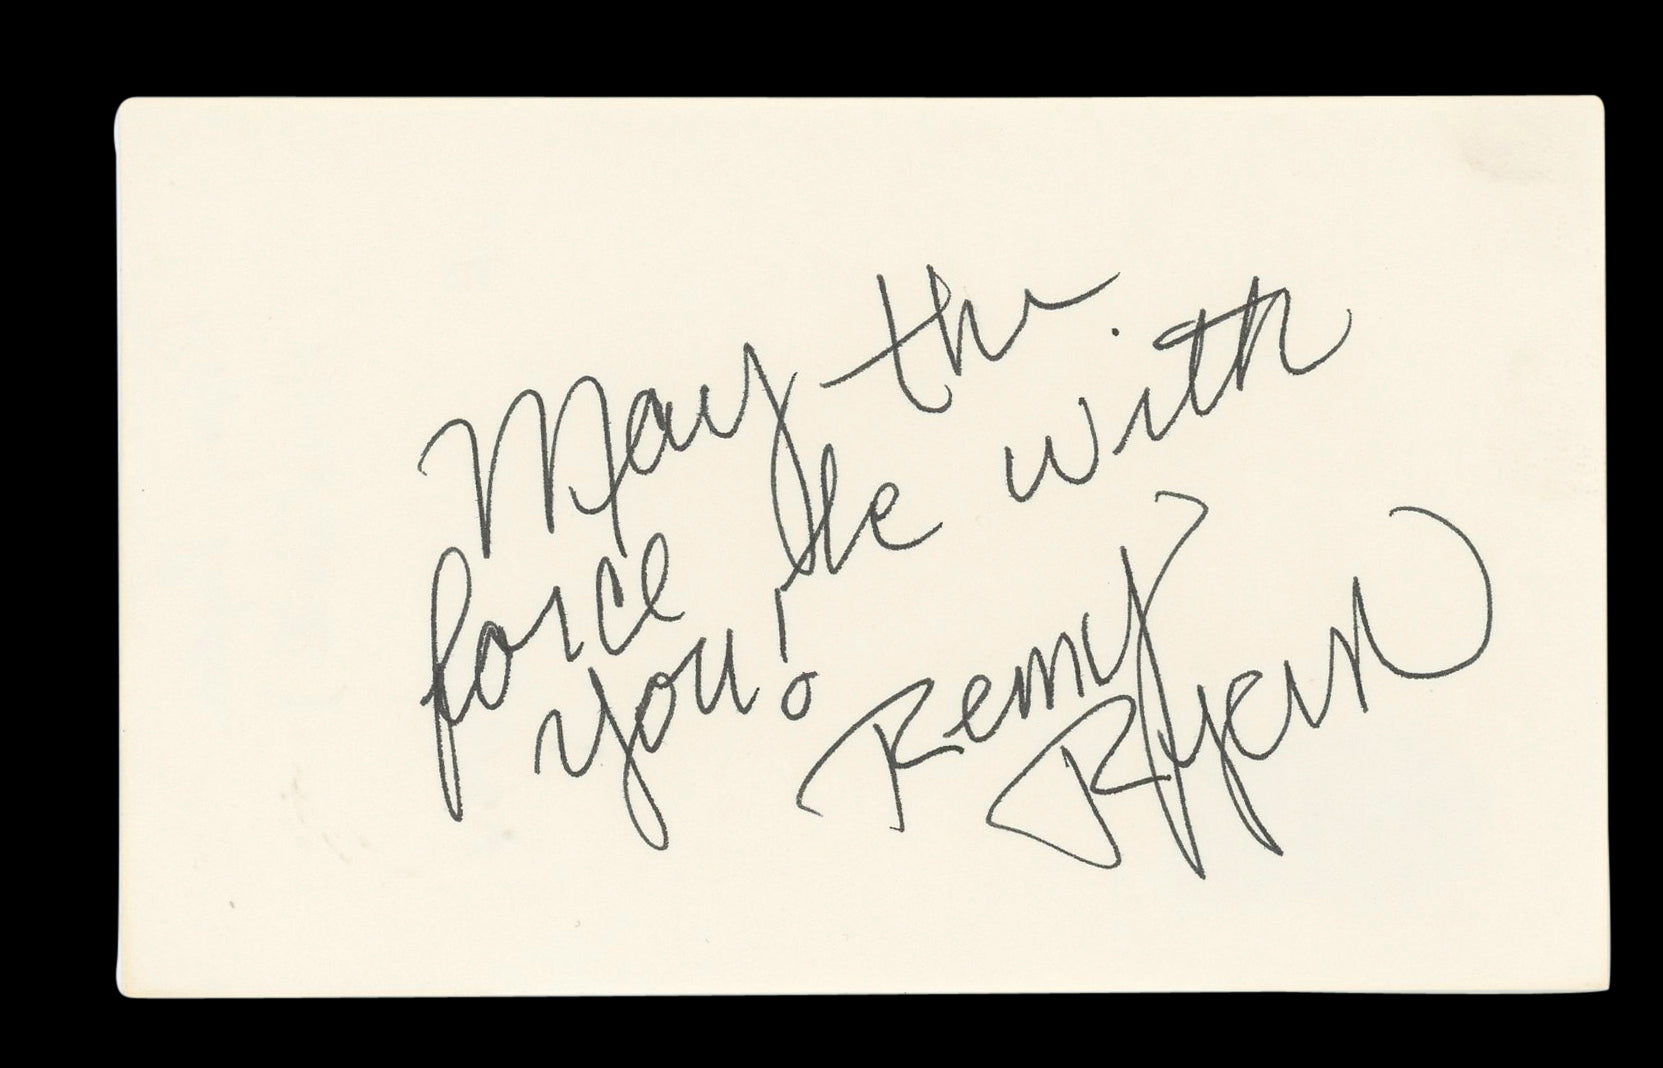 May the
force be with
you!
Remy
Ryan